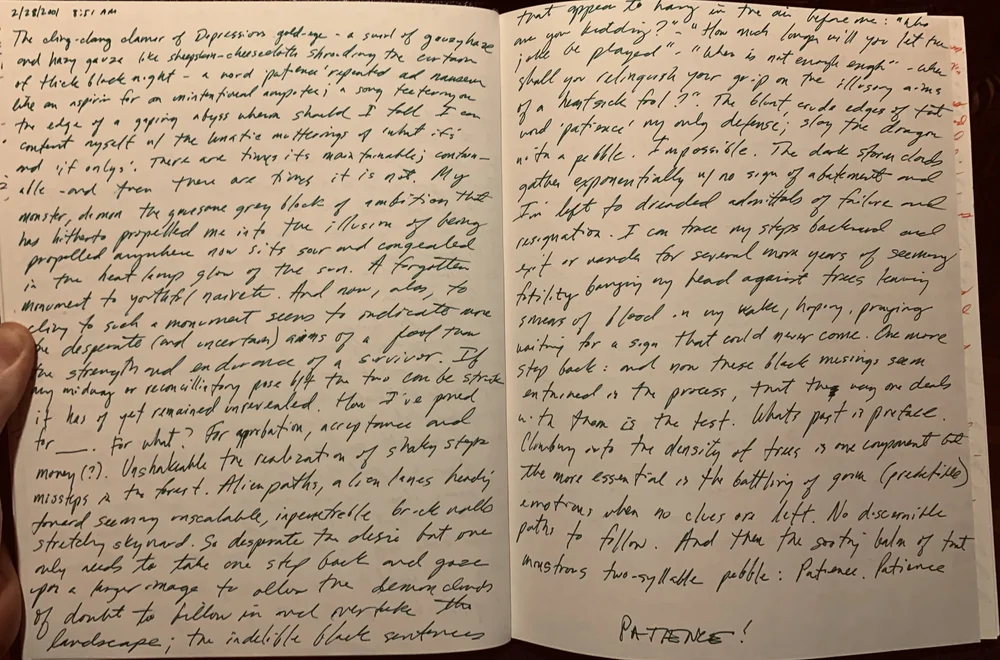 2/28/2001 8:51 AM
The cling-clang clamor of Depression's gold-age - a swirl of gauzy haze
and hazy gauze like sheepskin-cheesecloth shrouding the curtain
of thick black night - a word 'patience' repeated ad nauseum
like an aspirin for an unintentional amputee; a song teetering on
the edge of a gaping abyss wherein should I fall I can
comfort myself w/ the lunatic mutterings of 'what ifs'
and 'if onlys'. There are times its maintainable; contain-
able - and then there are times it is not. My
monster, demon the gruesome grey block of ambition that
has hitherto propelled me into the illusion of being
propelled anywhere now sits sour and congealed
in the heat lamp glow of the sun. A forgotten
monument to youthful naivete. And now, alas, to
cling to such a monument seems to indicate more
the desperate (and uncertain) aims of a fool than
the strength and endurance of a survivor. If
any midway or reconciliatory pose b/t the two can be struck
it has of yet remained unrevealed. How I've pined
for __. For what? For approbation, acceptance and
money(?). Unshakeable the realization of shaky steps
missteps in the forest. Alien paths, alien lanes heading
toward seeming unscalable, impenetrable brick walls
stretching skyward. So desperate the desire but one
only needs to take one step back and gaze
upon a larger image to allow the demon clouds
of doubt to billow in and overtake the
landscape; the indelible black sentences
that appear to hang in the air before me: "Who
are you kidding?" - "How much longer will you let the
joke be played" - "When is not enough enough" - when
shall you relinquish your grip on the illusory aims
of a heartsick fool?". The blunt crude edges of that
word 'patience' my only defense; slay the dragon
with a pebble. Impossible. The dark storm clouds
gather exponentially w/ no sign of abatement and
I'm left to dreaded admittals of failure and
resignation. I can trace my steps backward and
exit or wander for several more years of seeming
futility banging my head against trees leaving
smears of blood in my wake, hoping, praying
waiting for a sign that could never come. One more
step back: and now these black musings seem
entwined in the process, that the way one deals
with them is the test. Whats past is preface.
Climbing into the density of trees is one component but
the more essential is the battling of gown (predictible)
emotions when no clues are left. No discernible
paths to follow. And then the soothing balm of that
monstrous two-syllable pebble: Patience. Patience
PATIENCE!